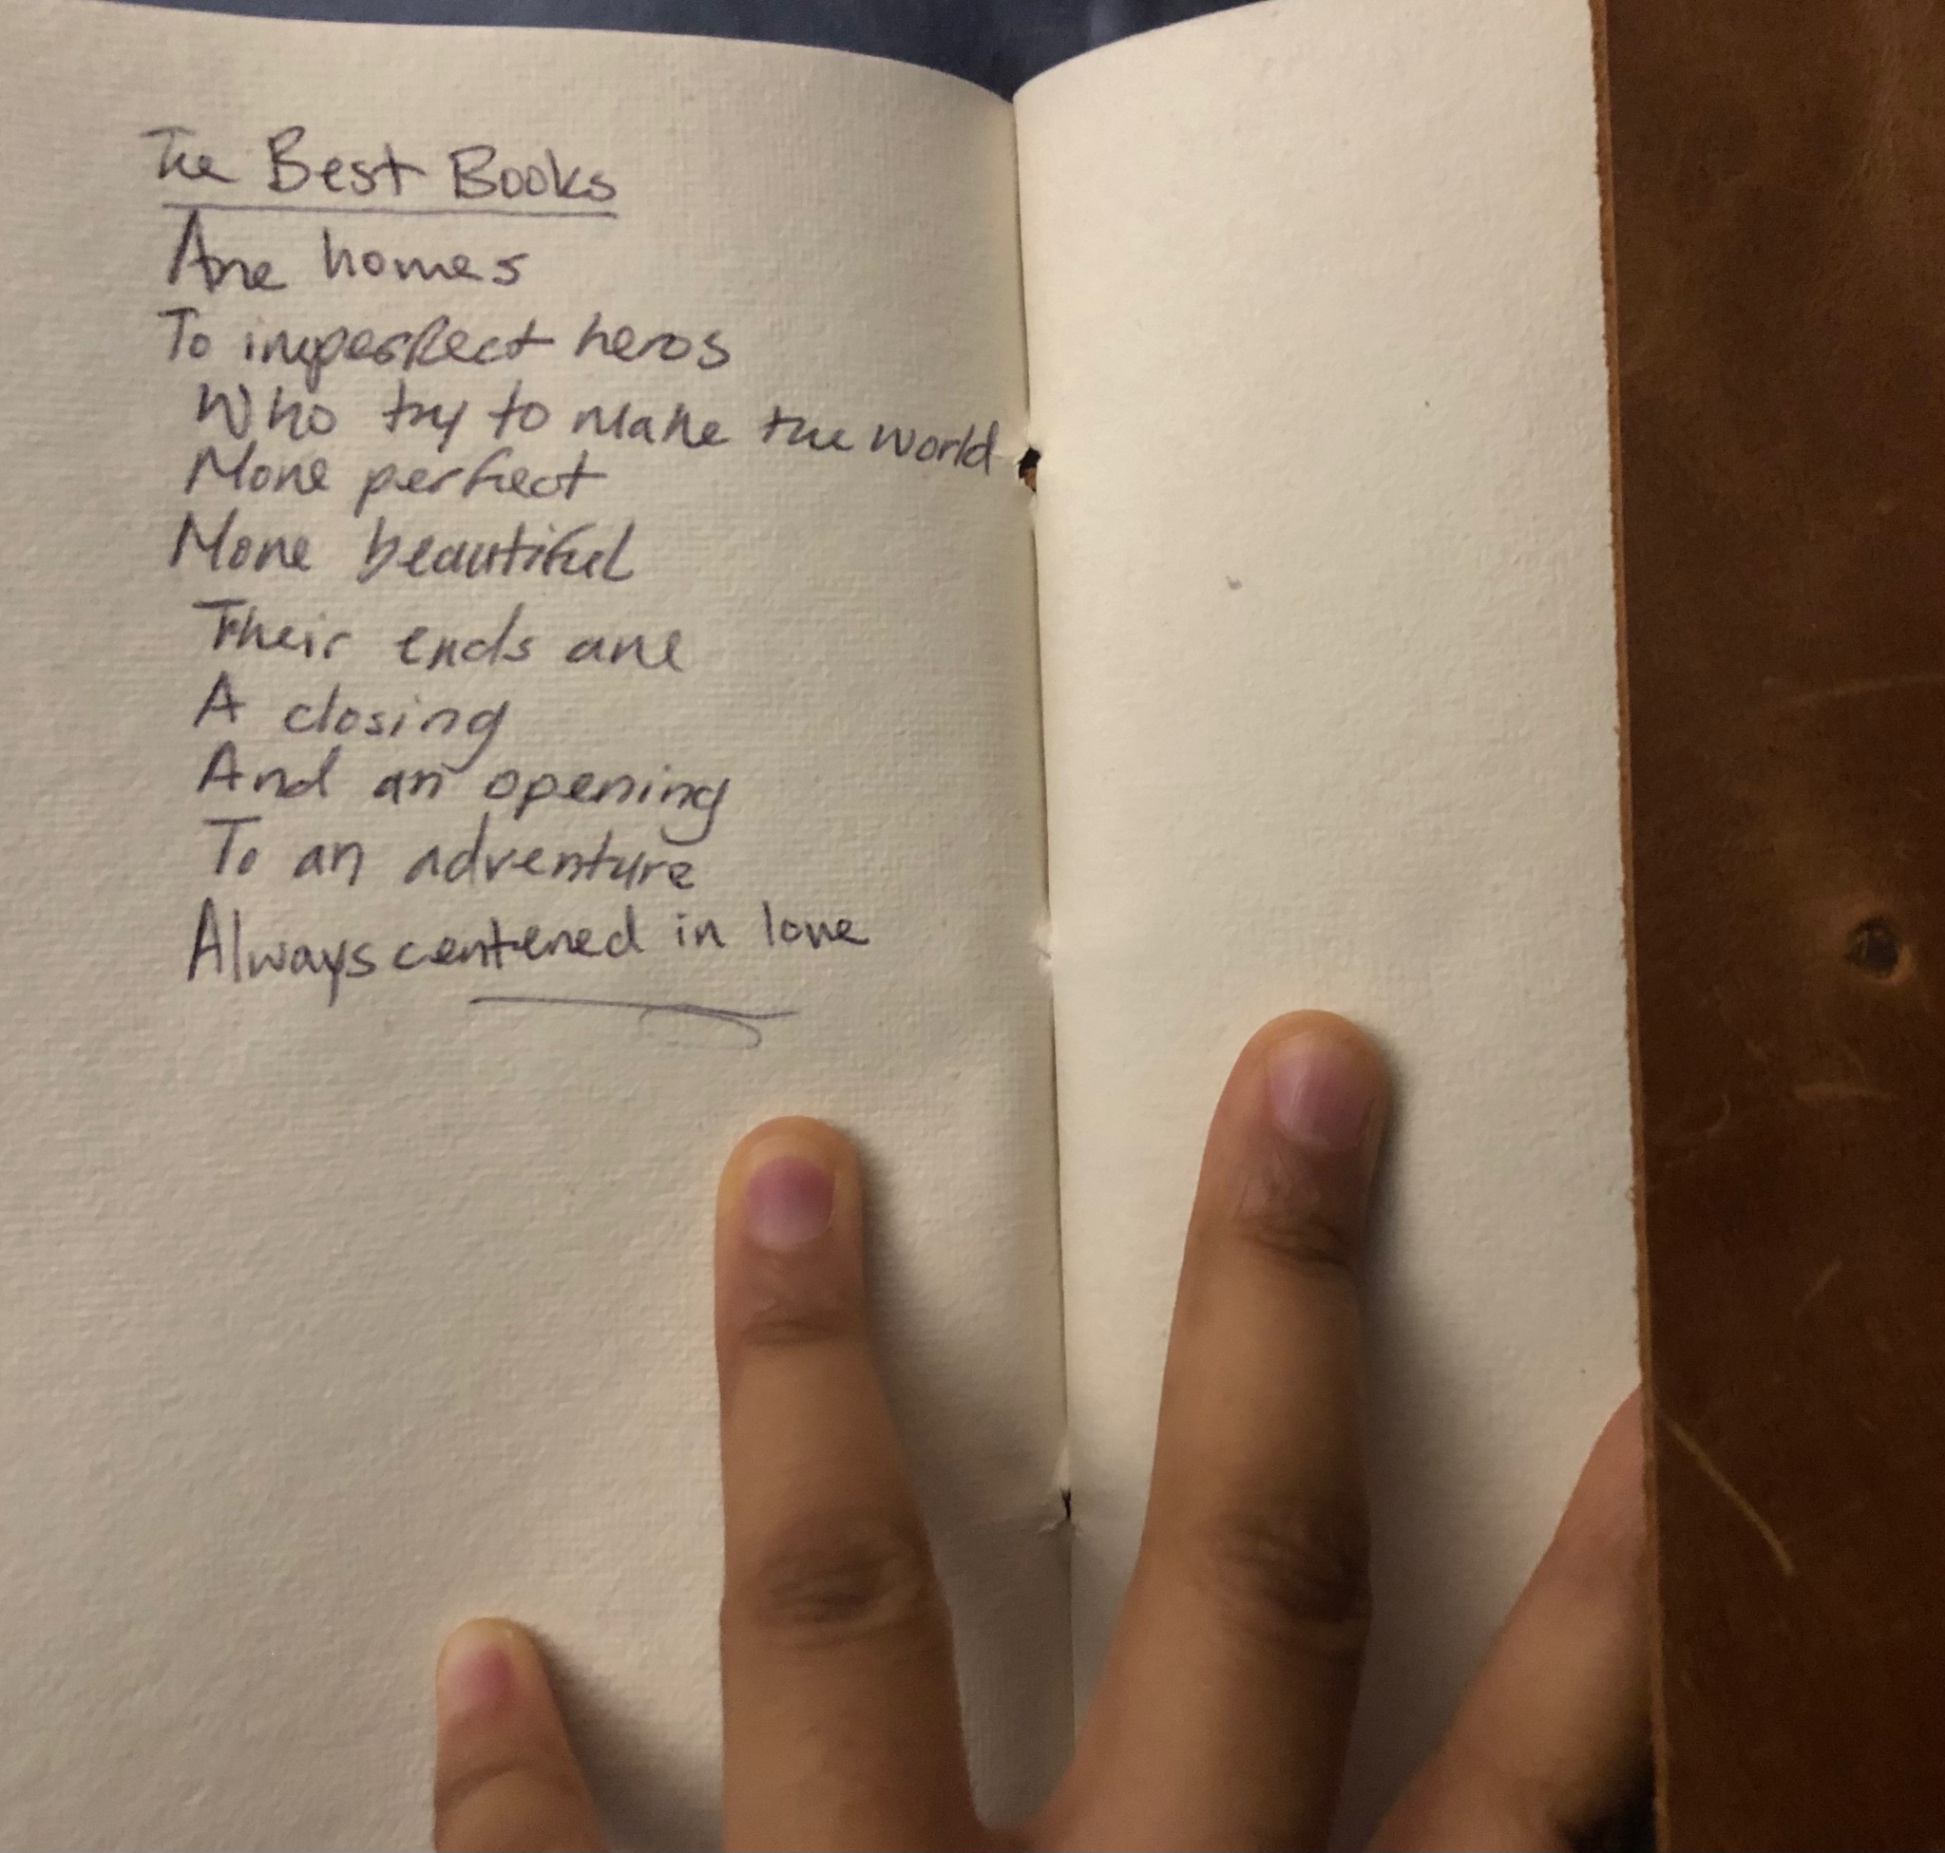 The Best Books
Are homes
To imperfect heros
Who try to make the world
More perfect
More beautiful
Their ends are
A closing
And an opening
To an adventure
Always centered in love